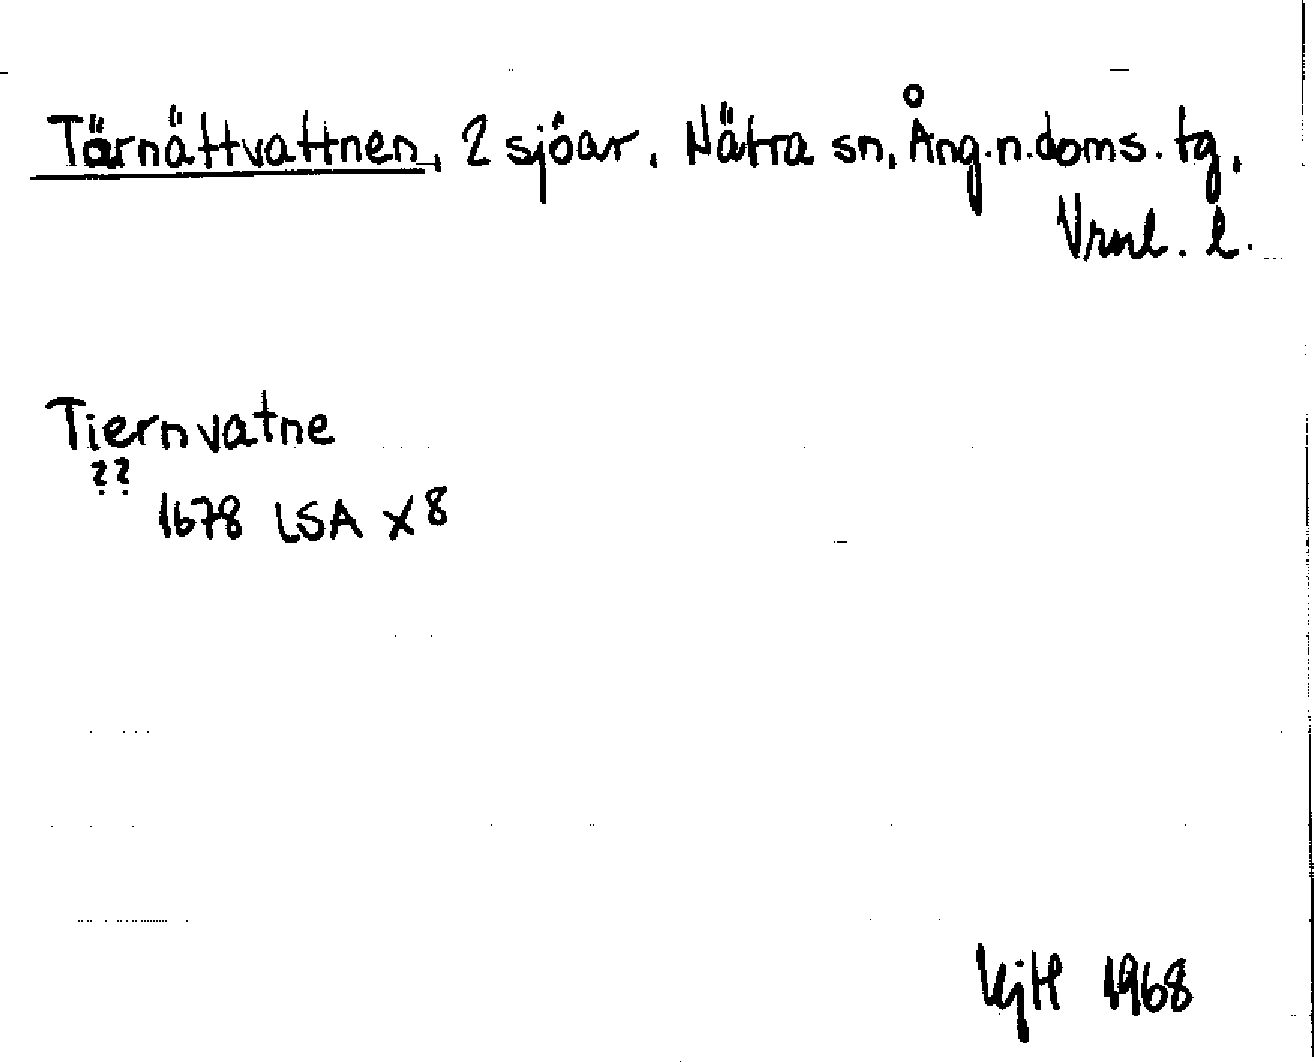 Tärnättvattnen, 2 sjöar. Nätra sn, Ång.n.doms. tg,
Vrnl. l.
Tiernvatne
??
1678 LSA X8
KjH 1968